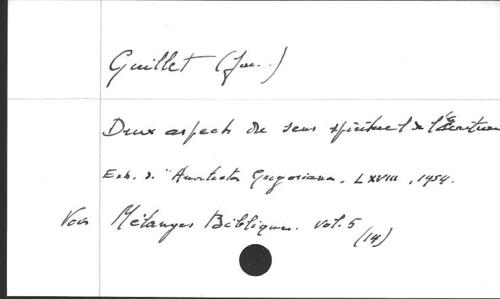 Guillet (Jac..)
Deux aspects du sens spirituel de l'Écriture
Ext. d. "Analecta Gregoriana. LXVIII, 1954.
Voir Mélanges Bibliques. vol. 5
(14)